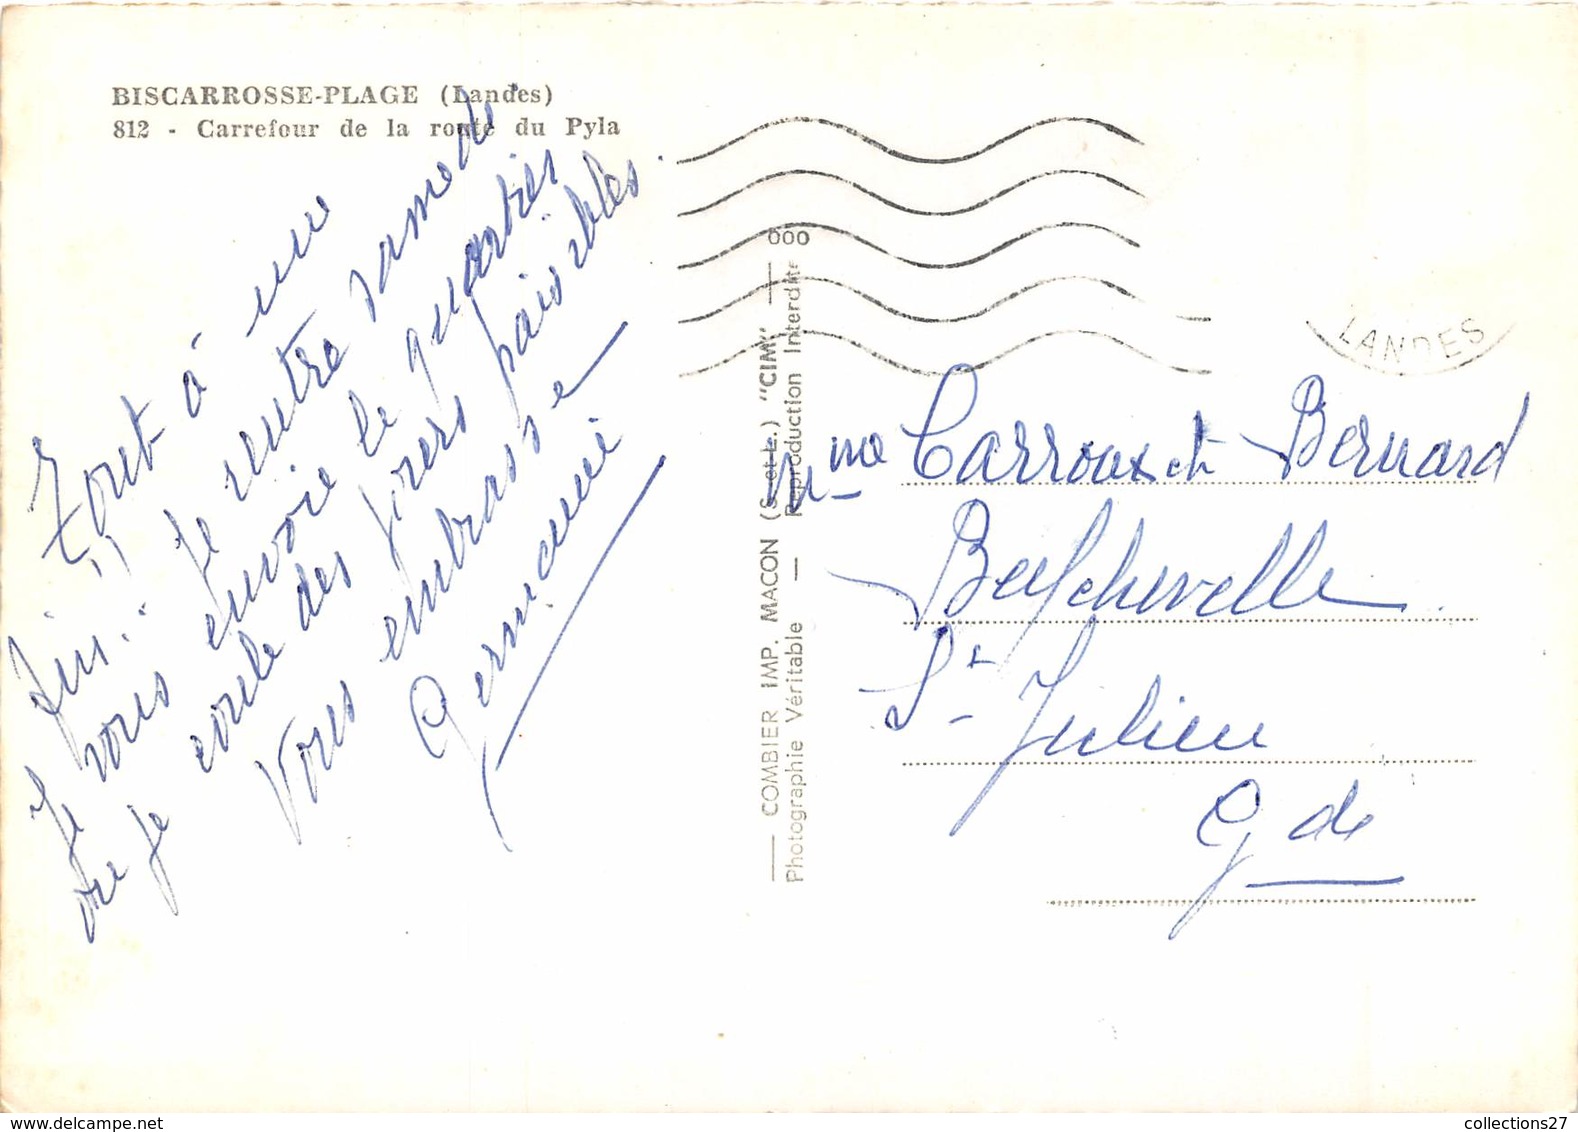 BISCARROSSE-PLAGE (Landes)
812 - Carrefour de la route du Pyla
Tout à une
fin ! Je rentre samedi
Je vous envoie le quartier
où je coule des jours paisibles
Vous embrasse
Germaine
COMBIER IMP. MACON (S.-et-L.) "CIM"
Photographie Véritable — Reproduction Interdite
000
LANDES
Mme Carroux et Bernard
St Julien
Gde
collections27